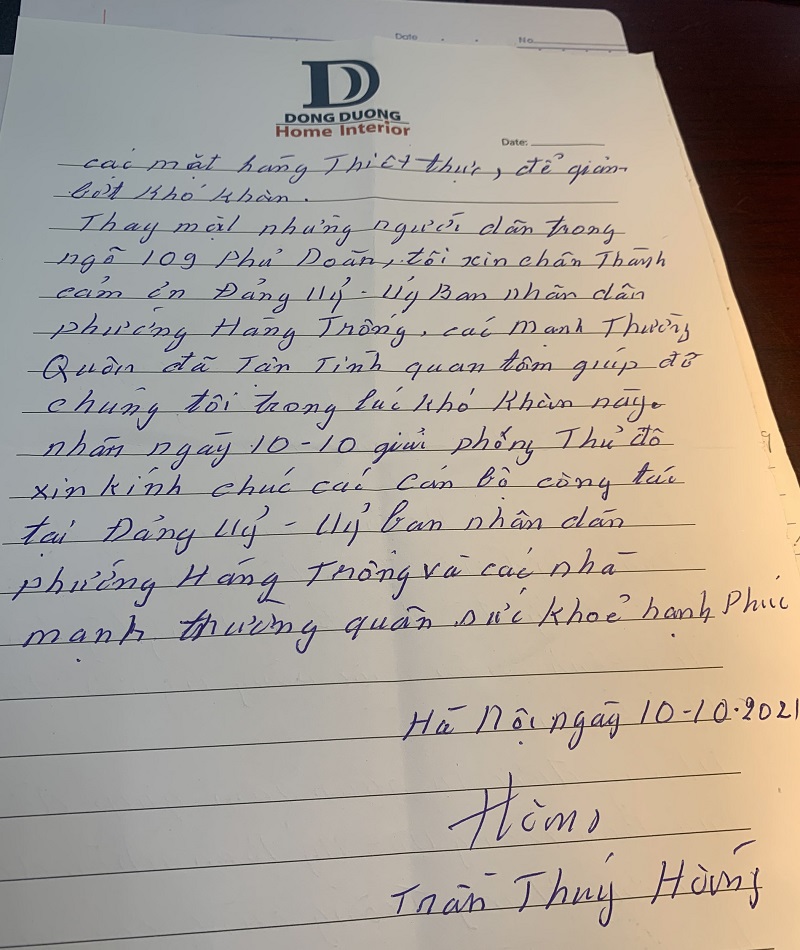 Date
No
D
DONG DUONG
Home Interior
Date:
các mặt hàng Thiết thực, để giảm
bớt khó khăn.
Thay mặt những người dân trong
ngõ 109 Phủ Doãn, tôi xin chân Thành
cảm ơn Đảng Uỷ - Uỷ Ban nhân dân
phường Hàng Trống, các mạnh Thường
Quân đã Tận Tình quan tâm giúp đỡ
chúng tôi trong lúc khó khăn này.
nhân ngày 10-10 giải phóng Thủ đô
xin kính chúc các cán bộ công tác
tại Đảng Uỷ - Uỷ ban nhân dân
phường Hàng Trống và các nhà
mạnh thường quân sức khoẻ hạnh Phúc
Hà Nội ngày 10-10-2021
Trần Thuý